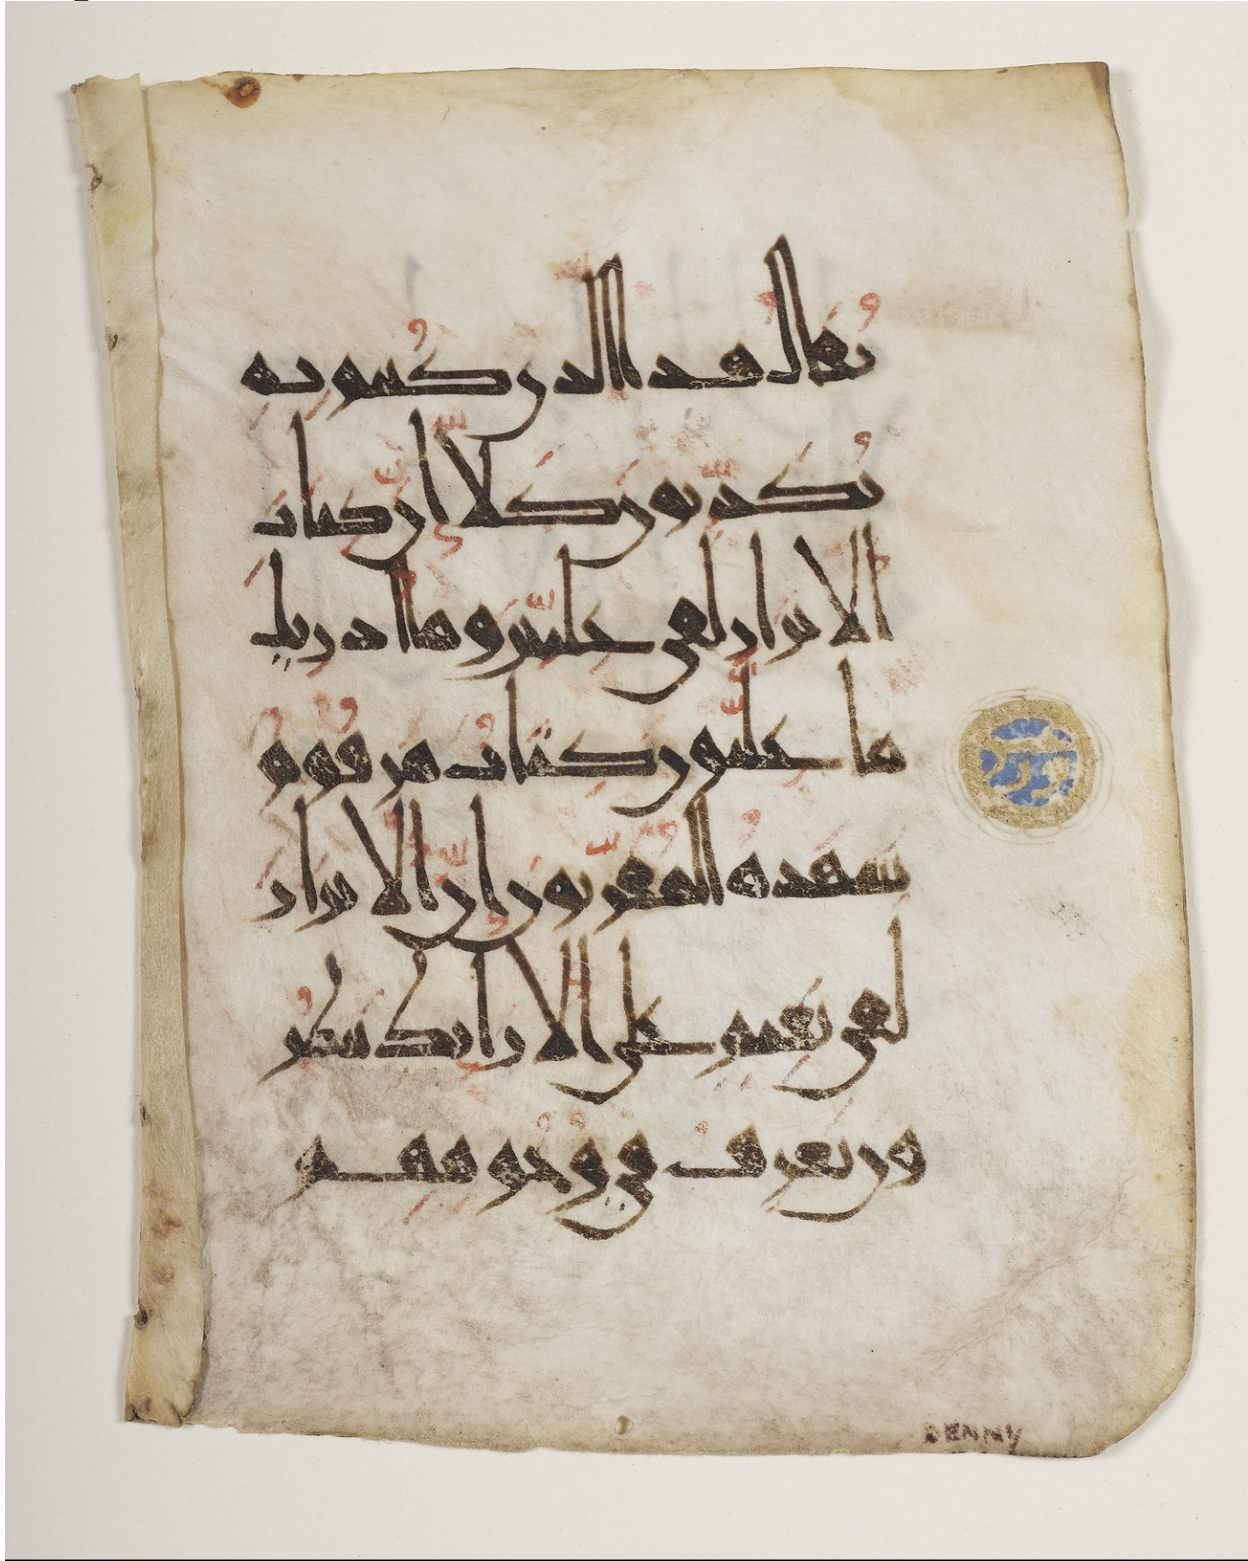 يقال هذا الذي كنتم به
تكذبون كلا ان كتاب
الابرار لفي عليين وما ادريك
ما عليون كتاب مرقوم
يشهده المقربون ان الابرار
لفي نعيم على الارايك ينظر
ون تعرف في وجوههم
DENNY